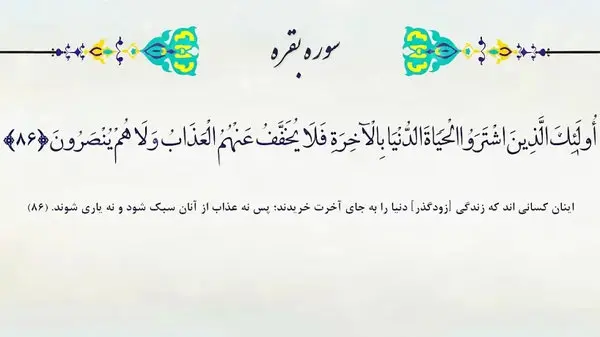 سوره بقره
أُولَئِكَ الَّذِينَ اشْتَرَوُا الْحَيَاةَ الدُّنْيَا بِالْآخِرَةِ فَلَا يُخَفَّفُ عَنْهُمُ الْعَذَابُ وَلَا هُمْ يُنْصَرُونَ ﴿۸۶﴾
اینان کسانی اند که زندگی [زودگذر] دنیا را به جای آخرت خریدند؛ پس نه عذاب از آنان سبک شود و نه یاری شوند. (۸۶)